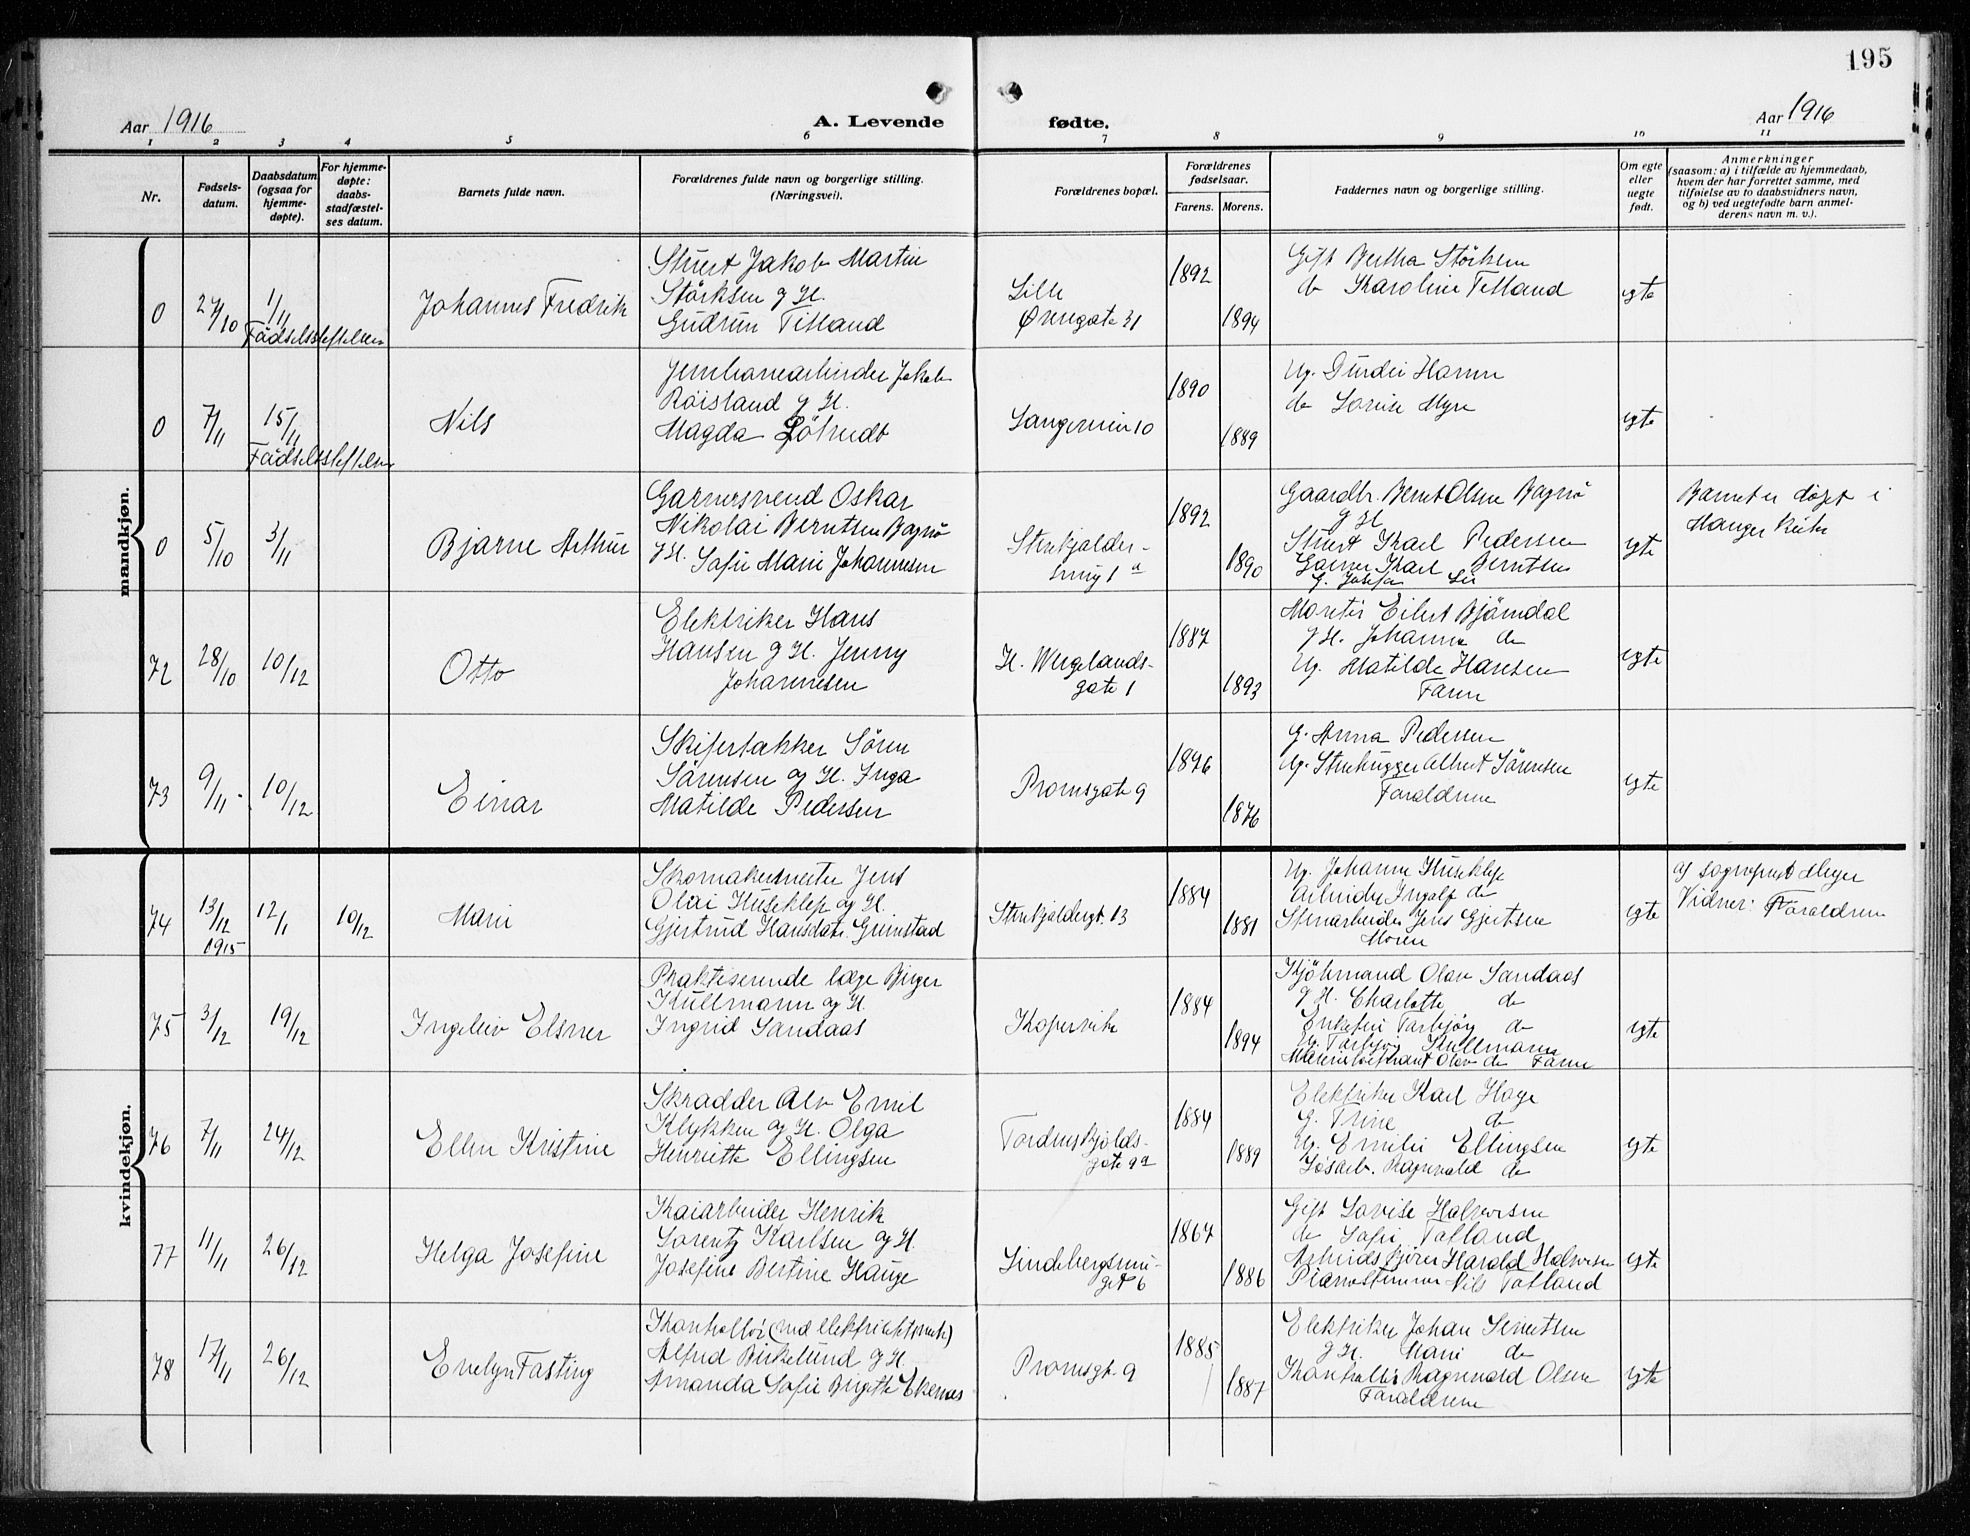 195
Aar 1916
A. Levende fødte.
Aar 1916
1 2 3 4 5 6 7 8 9 10 11
Nr.
Fødsels-
datum.
Daabsdatum
(ogsaa for
hjemme-
døpte).
For hjemme-
døpte:
daabs-
stadfæstel-
ses datum.
Barnets fulde navn.
Forældrenes fulde navn og borgerlige stilling.
(Næringsvei).
Forældrenes bopæl.
Forældrenes
fødselsaar.
Farens. Morens.
Faddernes navn og borgerlige stilling.
Om egte
eller
uegte
født.
Anmerkninger
(saasom: a) i tilfælde av hjemmedaab,
hvem der har forrettet samme, med
tilføielse av to daabsvidners navn,
og b) ved uegtefødte barn anmel-
derens navn m. v.).
mandkjøn.
0
27/10
1/11
Fødselsstiftelsen
Johannes Fredrik
Stuert Jakob Martin
Störksen g H.
Gudrun Titland
Lille
Øvregate 31
1892
1894
Gift Bertha Störksen
do Karoline Titland
egte
0
7/11
15/11
Fødselsstiftelsen
Nils
Jernbanearbeider Jakob
Röisland g H.
Magda
Langeveien 10
1890
1889
Ug. Hamre
do Lovise Myre
egte
0
5/10
3/11
Bjarne Arthur
Garversvend Oskar
Nikolai Berntsen Bagnö
g H. Sofie Marie Johannesen
Stenkjelder-
smug 1 a
1892
1890
Gaardbr. Bernt Olsen Bagnö
g H
Stuert Karl Pedersen
Garver Karl Berntsen
G. Josefa Lie
egte
Barnet er døpt i
Manger kirke
72
28/10
10/12
Otto
Elektriker Hans
Hansen g H. Jenny
Johannesen
H. Wergelands-
gate 1
1887
1893
Eilert Bjørndal
g H. Johanna do
Ug. Matilde Hansen
Faren
egte
73
9/11
10/12
Einar
Skifertækker Sören
Sörensen og H. Inga
Matilde Pedersen
Promsgate 9
1876
1876
G. Anna Pedersen
Ug. Stenhugger Albert Sörensen
Forældrene
egte
kvindekjøn.
74
13/12
1915
12/1
10/12
Marie
Skomakermester Jens
Olai Huseklep og H.
Gjertrud Hansdatr. Grimstad
Stenkjeldergt. 13
1884
1881
Ug. Johanne Huseklep
Arbeider Ingolf do
Stenarbeider Jens Gjertsen
Moren
egte
af sogneprest Meyer
Vidner: Forældrene
75
3/12
19/12
Ingeleiv Elsner
Praktiserende læge Birger
Kullmann og H.
Ingrid Sandaas
Kopervik
1884
1894
Kjöbmand Olav Sandaas
g H. Charlotte do
Enkefru Torbjör do
Ug. Torbjör Kullmann
Olav do Faren
egte
76
7/11
24/12
Ellen Kristine
Skrædder Alv Emil
Klykken og H. Olga
Henriette Ellingsen
Tordenskjolds-
gate 9 a
1884
1889
Elektriker Karl Hage
G. Trine do
Ug. Emilie Ellingsen
Løsarb. Ragnvald do
egte
77
11/11
26/12
Helga Josefine
Kaiarbeider Henrik
Lorentz Karlsen og H.
Josefine Bertine Hauge
Lindebergsmu-
get 6
1867
1886
Gift Lovise Halvorsen
do Sofie Tofland
Arbeidskjörer Harald Halvorsen
Pianostemmer Nils Tofland
egte
78
17/11
26/12
Evelyn Fasting
Kontrollør (ved elektricitetsverk)
Alfred Birkelund g H.
Amanda Sofie Birgitte Ekernes
Promsgt. 9
1885
1887
Elektriker Johan Sivertsen
g H. Marie do
Kontrollør Ragnvald Olsen
Forældrene
egte